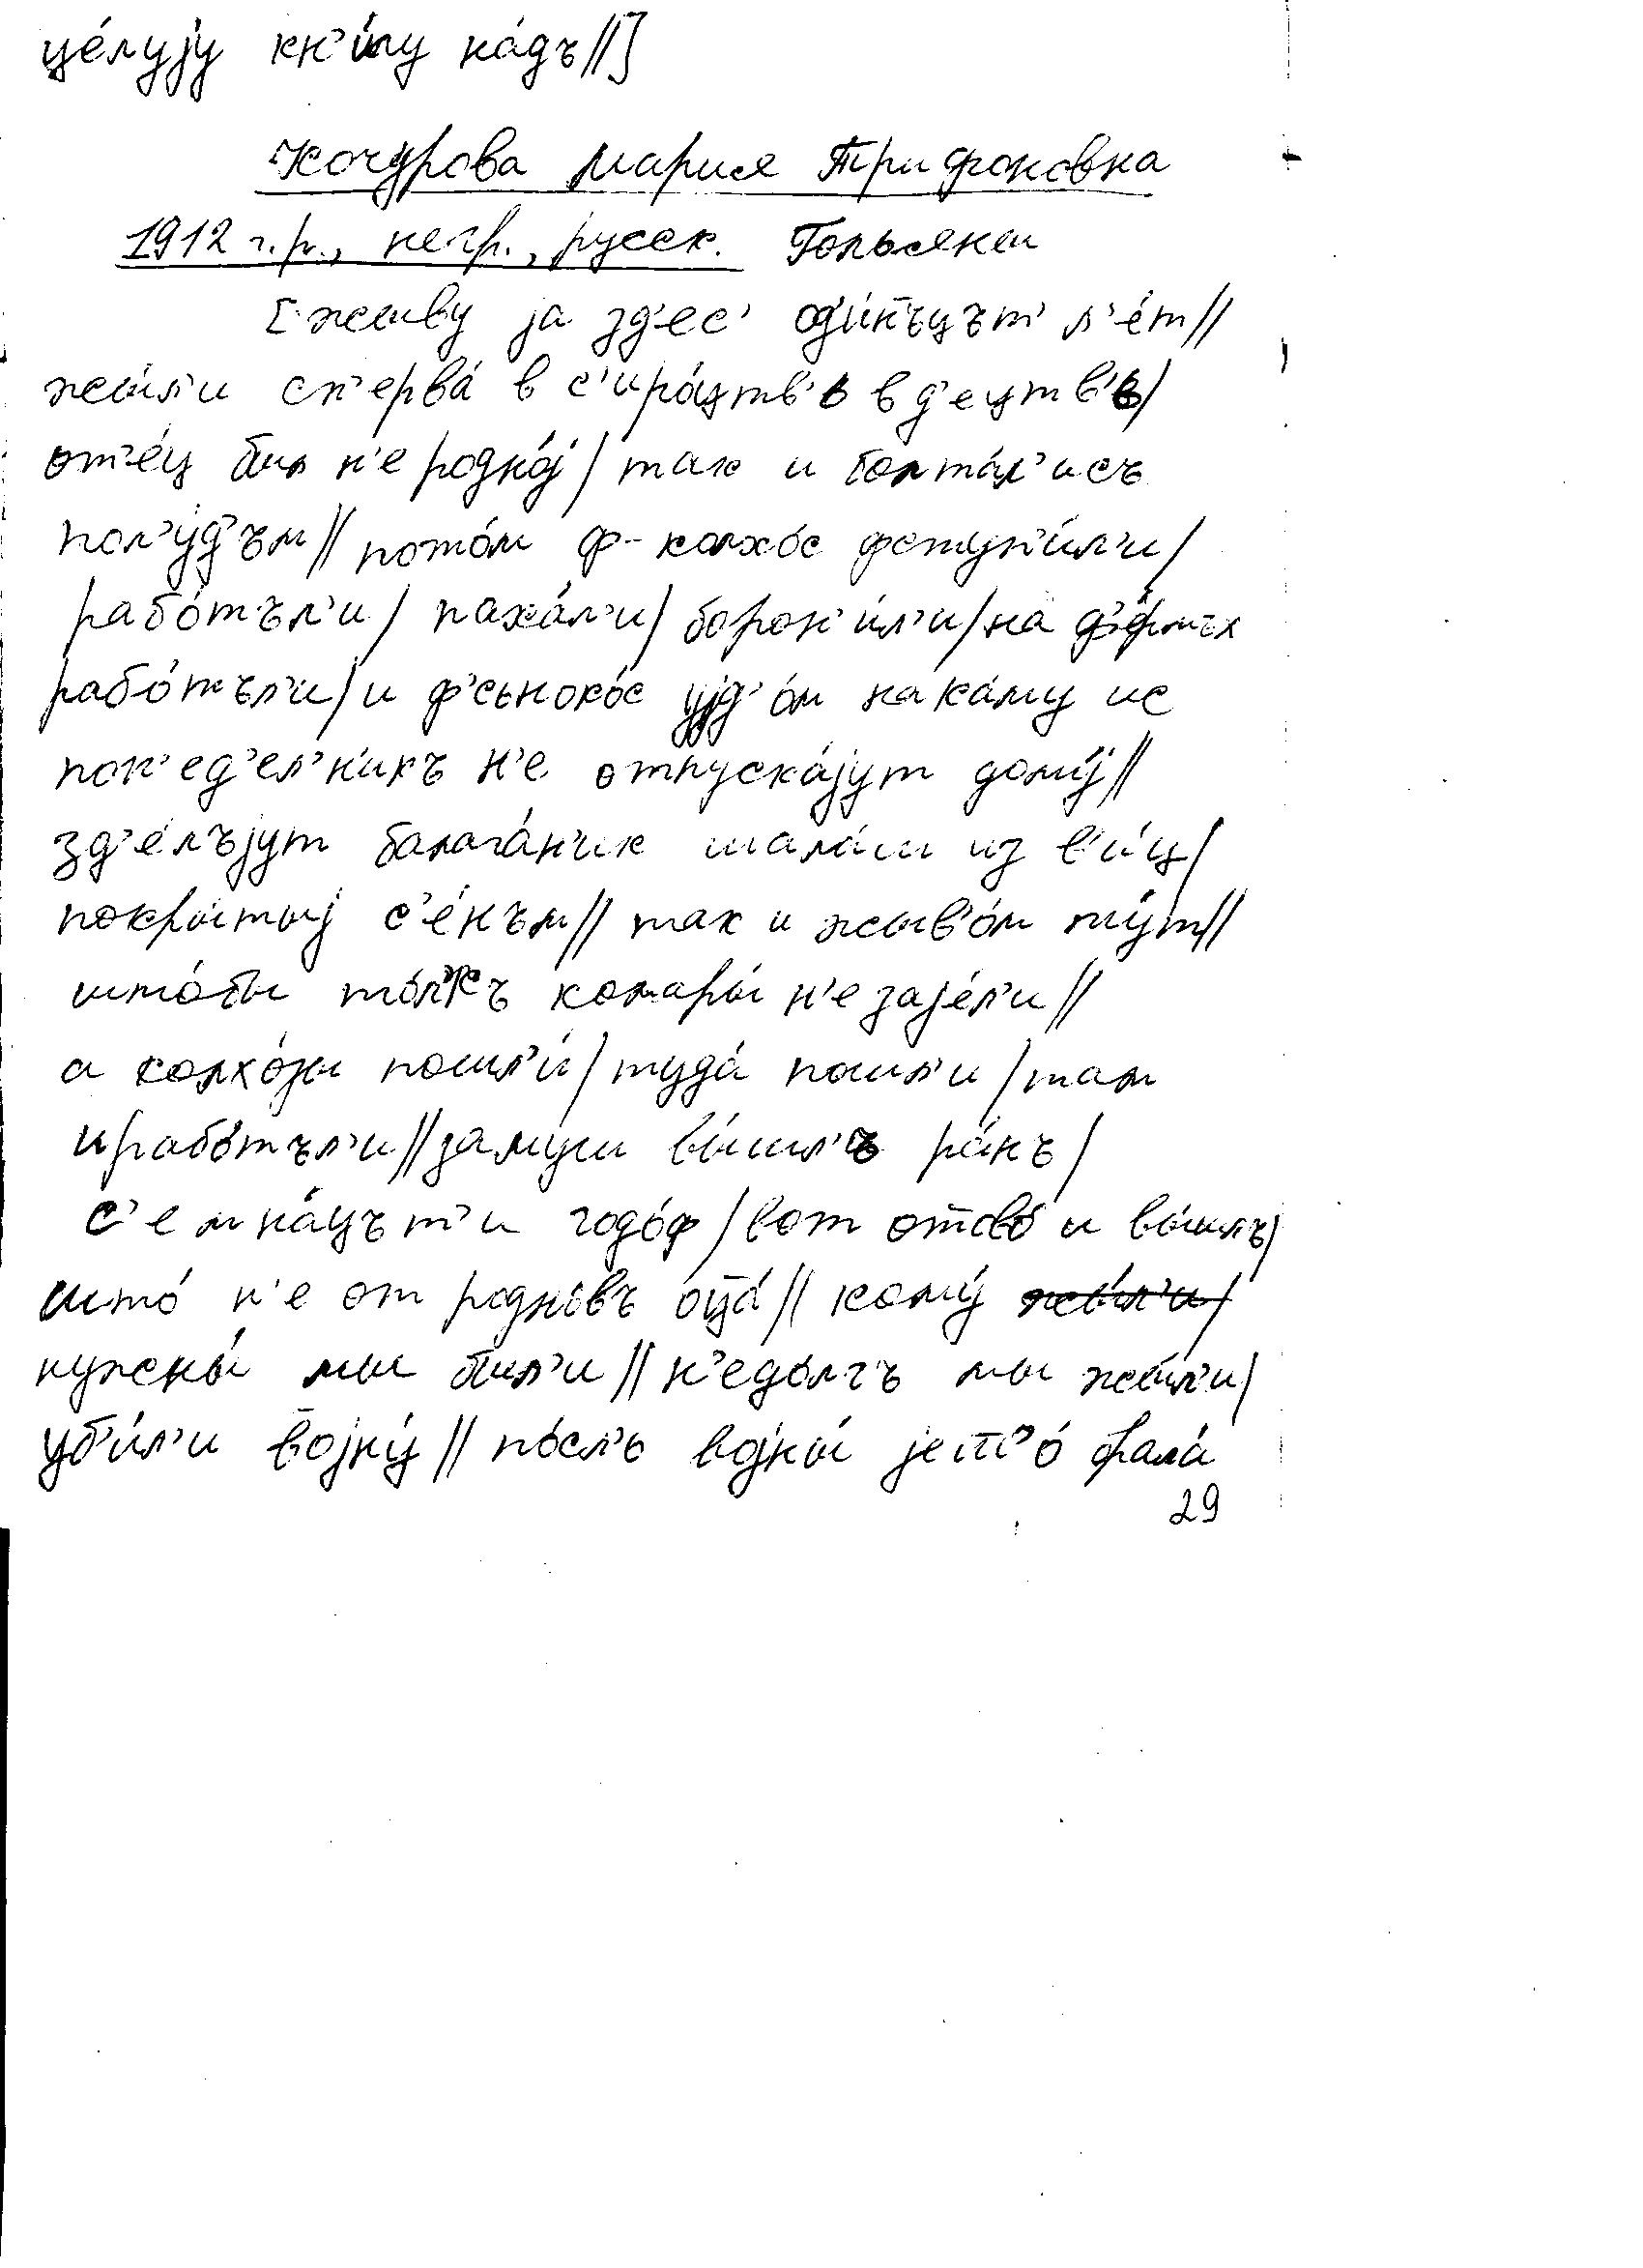 це́луjу кн'и́гу на́дъ//]
Кочурова Мария Трифоновна
1912 г.р., негр., русск. Гольяны
[живу jа зд'ес' оди́нъцът' л'е́т//
жы́л'и сп'ерва́ в с'иро́цтв'ь в д'ецтв'ь/
от'е́ц был н'е родно́j/ так и болта́л'ись
по л'у́д'ъм// пото́м ф-колхо́с фступ'и́л'и/
рабо́тъл'и/ паха́л'и/ борон'и́л'и/ на ф'е́рмъх
рабо́тъл'и/ и ф'сьноко́с уjд'о́м на ка́му ис
пон'ед'ел'н'икъ н'е отпуска́jут домо́j//
зд'е́лъjут балага́н'ик шала́ш из в'и́ц/
покры́тыj с'е́нъм// так и жыв'о́м ту́т//
што́бы то́л'къ комары́ н'е заjе́л'и//
а колхо́зы пошл'и́/ туда́ пошл'и/ там
и рабо́тъл'и// замуш вы́шлъ ра́нъ/
с'емна́цът'и годо́ф/ вот отово́ и вы́шлъ/
што́ н'е от родно́въ оца́// кому́
нужны́ мы был'и// н'едо́лгъ мы жы́л'и/
уб'и́л'и в войну́// по́сл'ь воjны́ jешо́ брала́
29